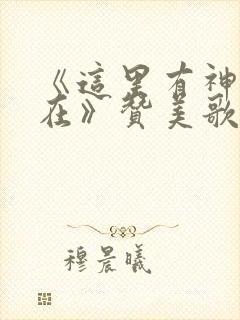 《這里有神
在》贊美歌
穆晨曦